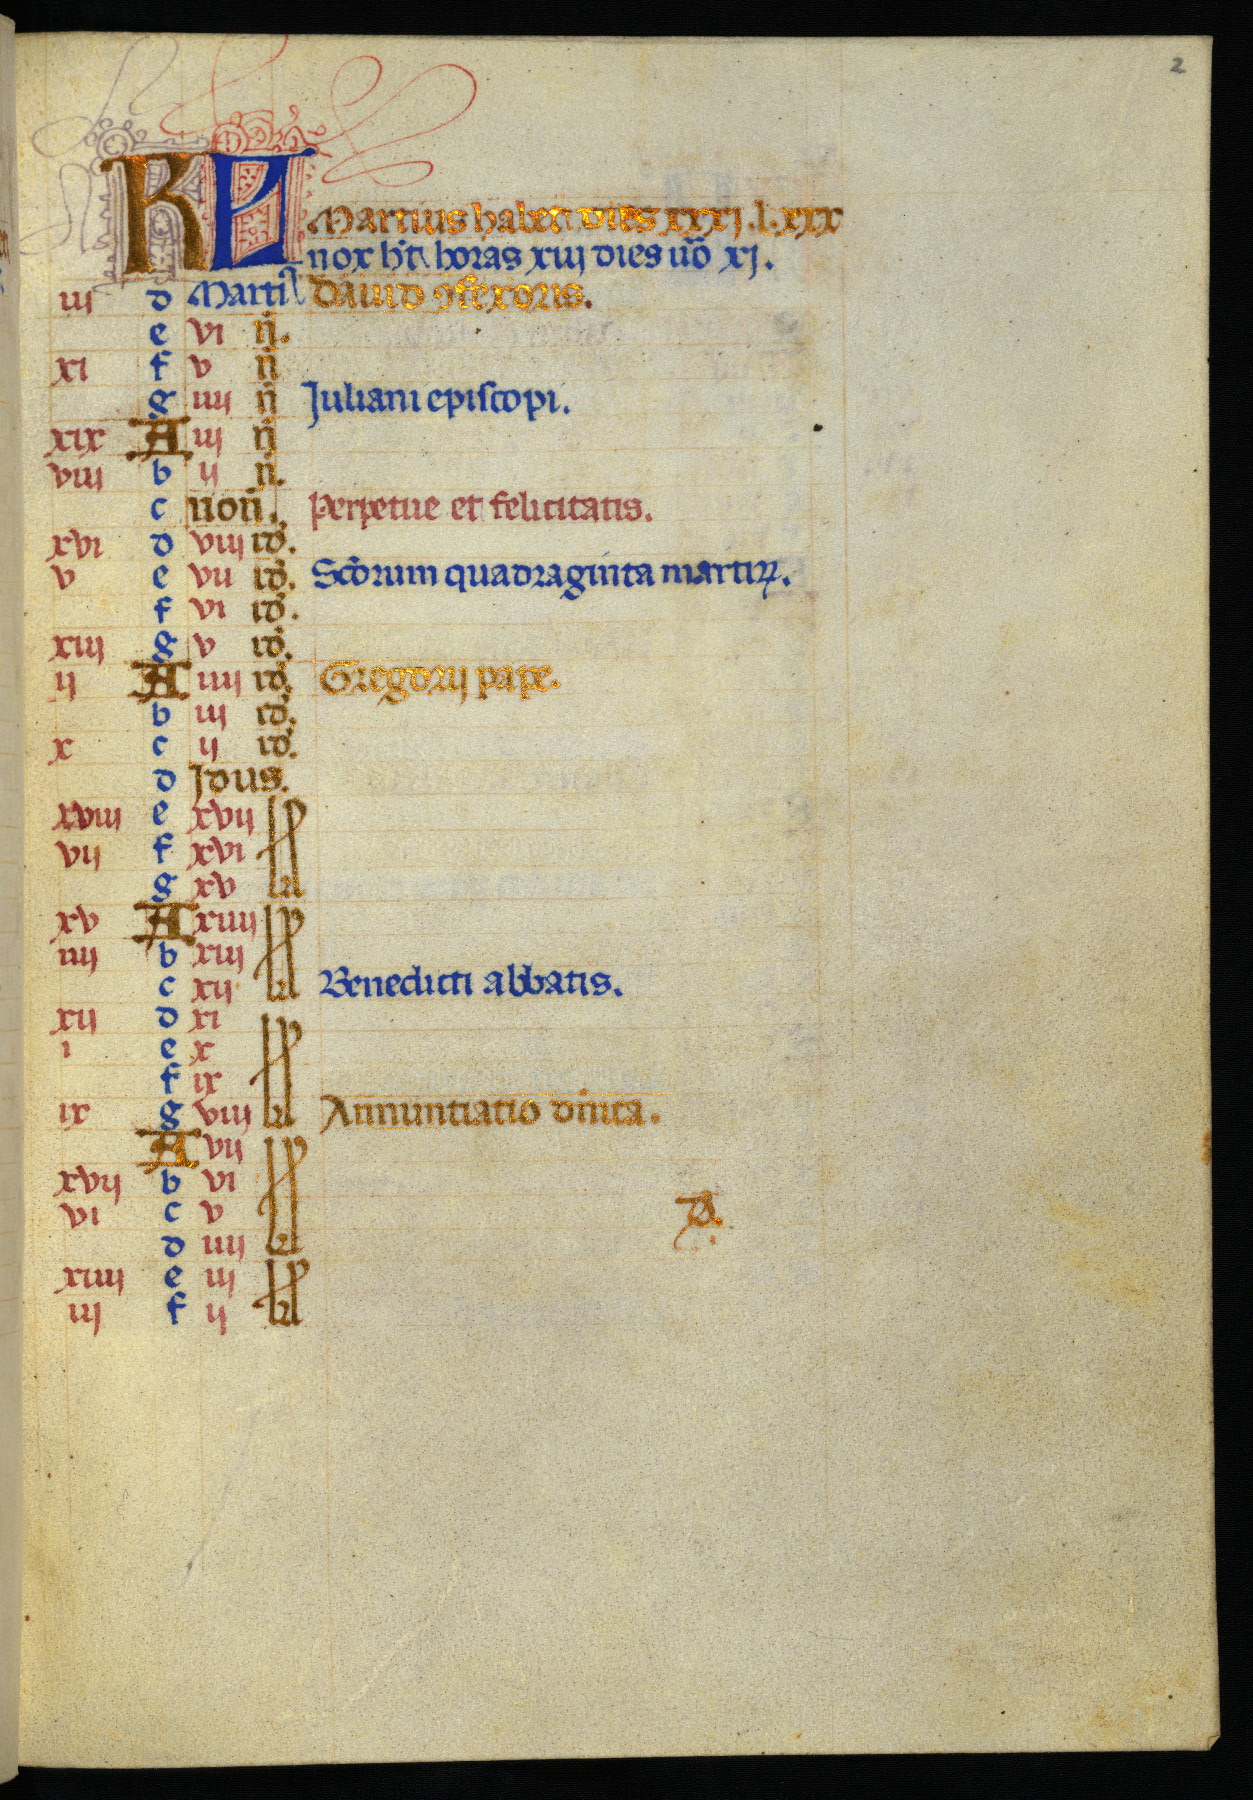 2
KL Martius habet dies xxxj .l. xxx
nox h't. horas xiij dies uo xj.
iij d Martij Dauid 9fexoris.
e vi n.
xi f v n
g iiij n Juliani episcopi.
xix A iij n
viij b ij n.
c non. Perpetue et felicitatis.
xvi d viij id.
v e vij id. Scorum quadraginta martiꝝ.
f vi id.
xiij g v id.
ij A iiij id. Gregorij pape.
b iij id.
x c ij id.
d Jdus.
xviij e xvij kl
vij f xvi
g xv
xv A xiiij kl
iiij b xiij
c xij Benedicti abbatis.
xij d xi kl
i e x
f ix
ix g viij Annuntiatio dnica.
A vij kl
xvij b vi
vi c v
d iiij
xiiij e iij kl
iij f ij